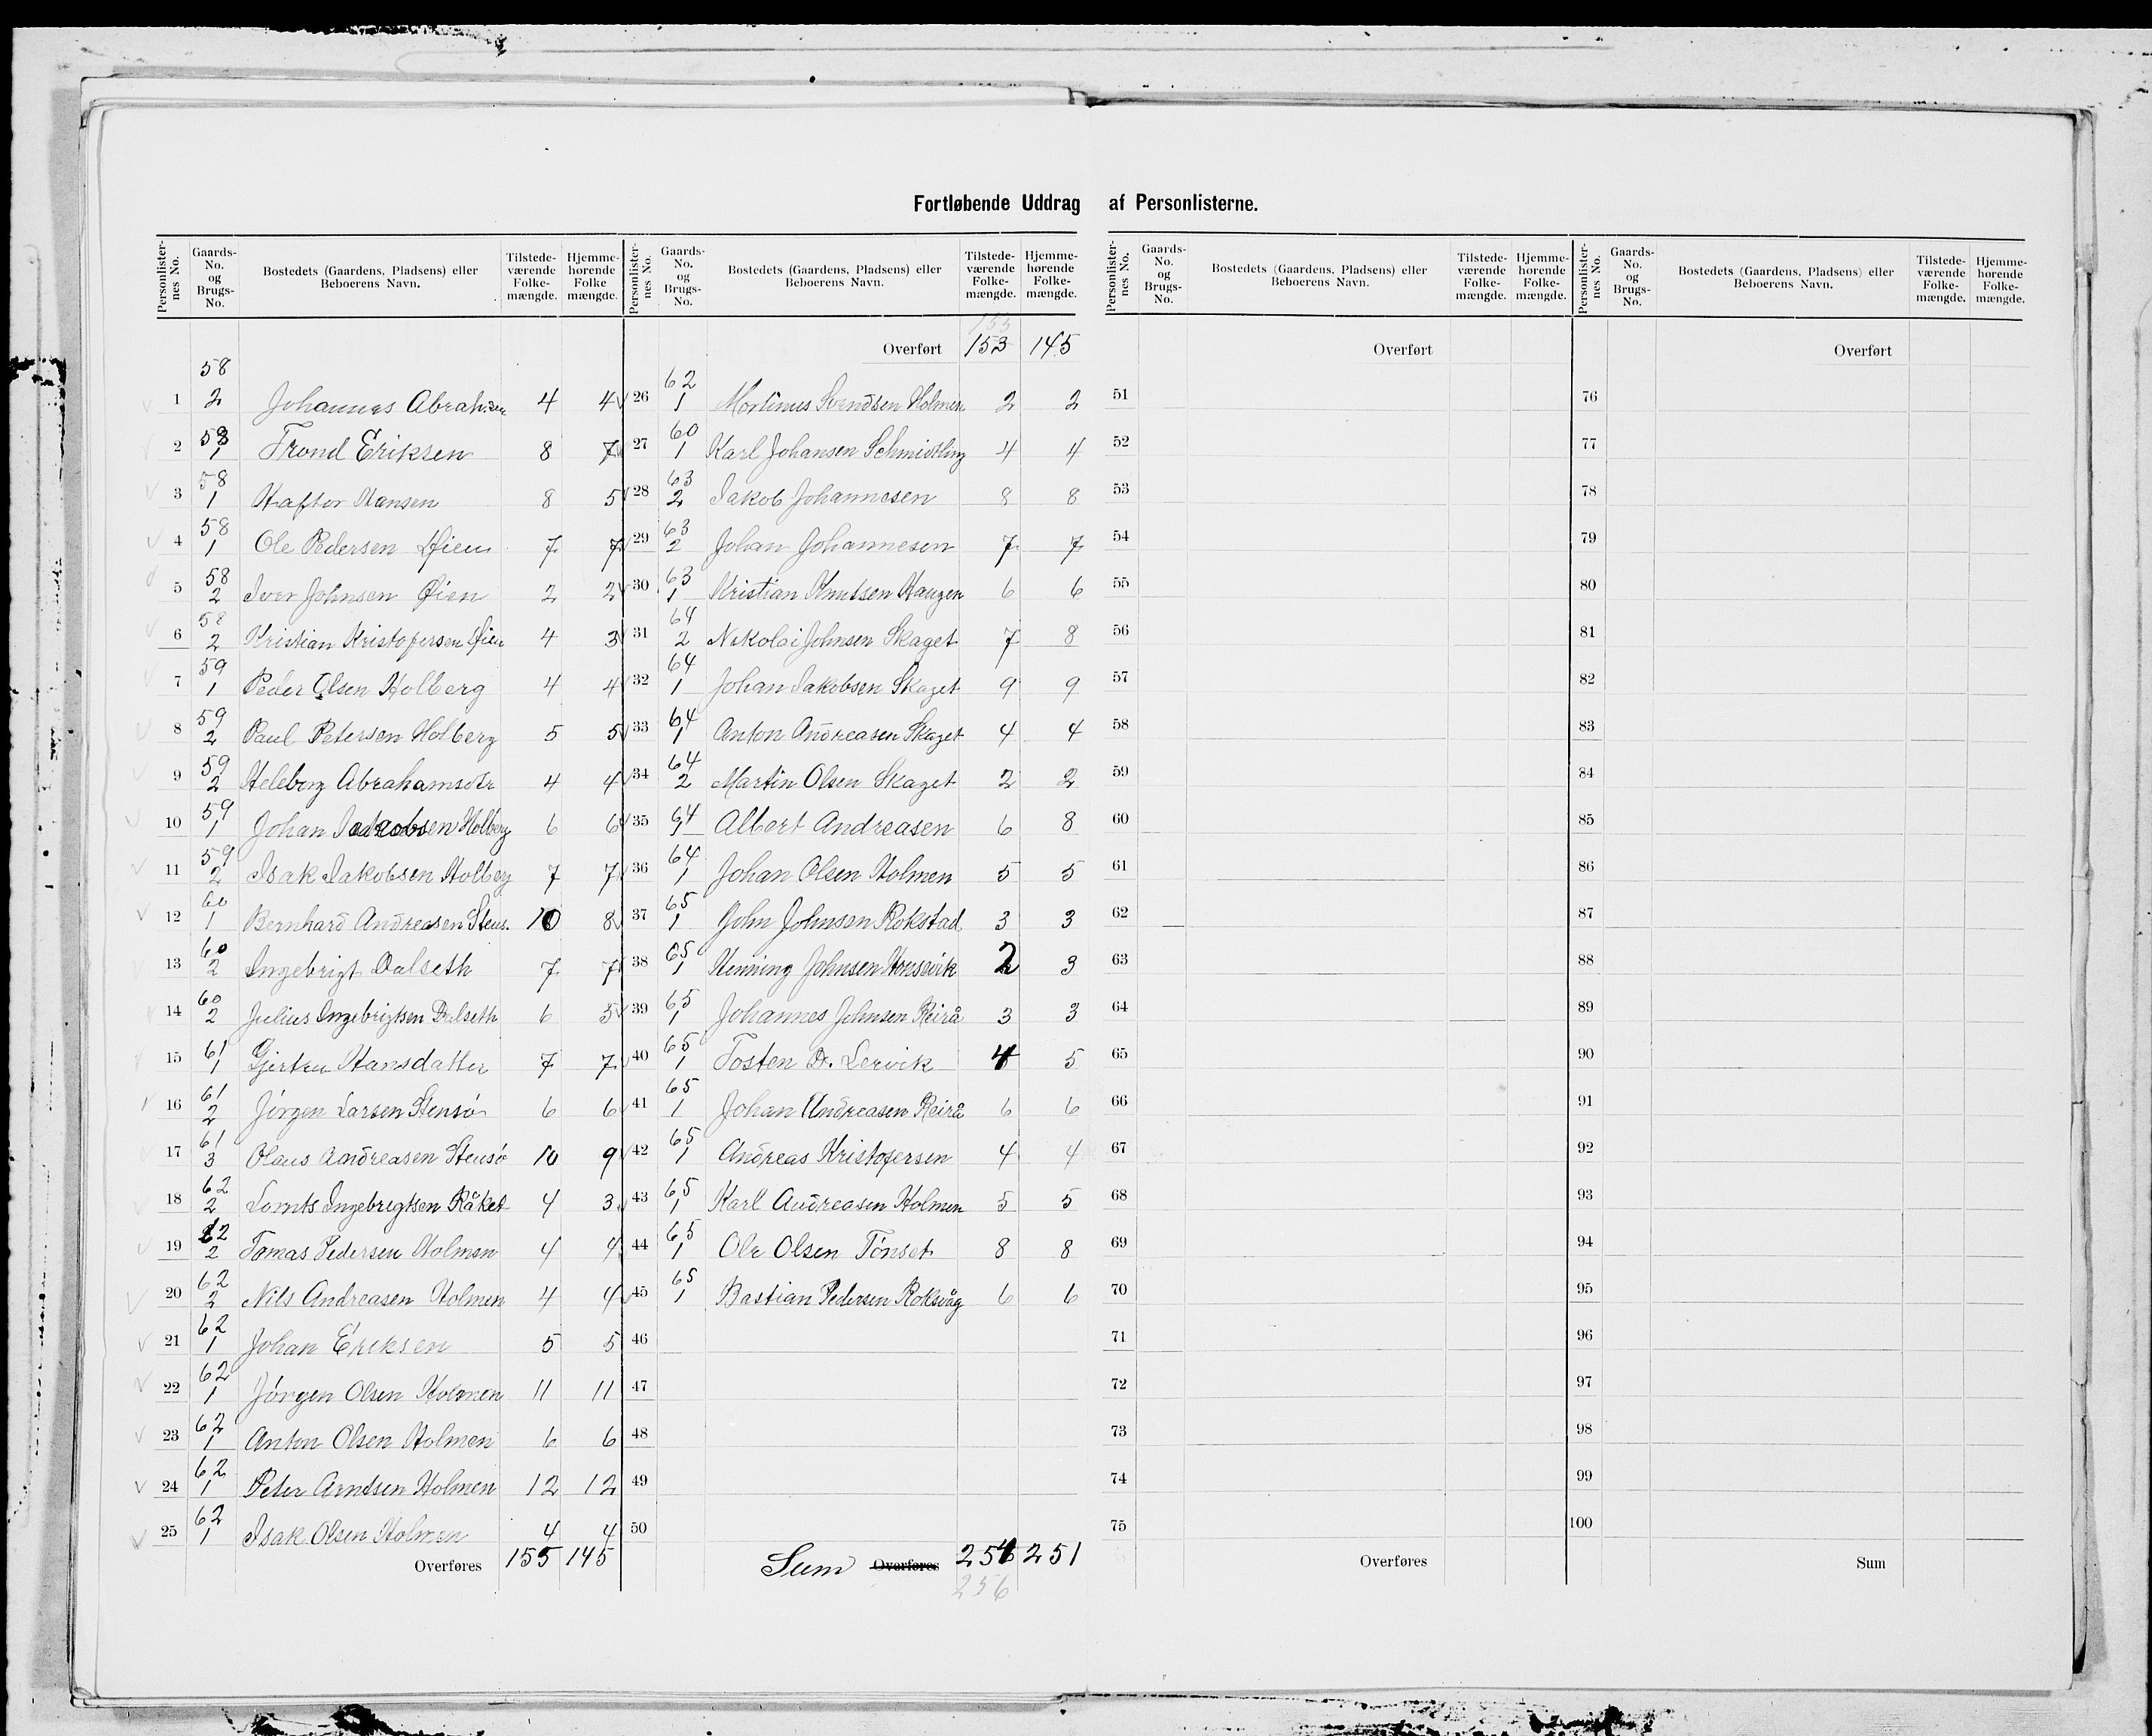 Fortløbende Uddrag af Personlisterne.
Personlisternes No. | Gaards-No. og Brugs-No. | Bostedets (Gaardens, Pladsens) eller Beboerens Navn. | Tilstedeværende Folkemængde. | Hjemmehørende Folkemængde.
1 58 2 Johannes Abrahamsen 4 4
2 58 1 Trond Eriksen 8 7
3 58 1 Haftor Hansen 8 5
4 58 1 Ole Pedersen Øien 7 7
5 58 2 Iver Johnsen Øien 2 2
6 58 2 Kristian Kristofersen Øien 4 3
7 59 1 Peder Olsen Holberg 4 4
8 59 2 Paul Petersen Holberg 5 5
9 59 2 Heleborg Abrahamsdtr 4 4
10 59 1 Johan Jakobsen Holberg 6 6
11 59 2 Isak Jakobsen Holberg 7 7
12 60 1 Bernhard Andreasen Stens. 10 8
13 60 2 Ingebrigt Dalseth 7 7
14 60 2 Julius Ingebrigtsen Dalseth 6 5
15 61 1 Gjertru Hansdatter 7 7
16 61 2 Jörgen Larsen Stensö 6 6
17 61 3 Olaus Andreasen Stensö 10 9
18 62 2 Lornts Ingebrigtsen Råket 4 3
19 62 2 Tomas Pedersen Holmen 4 4
20 62 2 Nils Andreasen Holmen 4 4
21 62 1 Johan Eriksen 5 5
22 62 1 Jörgen Olsen Holmen 11 11
23 62 1 Anton Olsen Holmen 6 6
24 62 1 Peter Arntsen Holmen 12 12
25 62 1 Isak Olsen Holmen 4 4
Overføres 155 145
Personlisternes No. | Gaards-No. og Brugs-No. | Bostedets (Gaardens, Pladsens) eller Beboerens Navn. | Tilstedeværende Folkemængde. | Hjemmehørende Folkemængde.
155
Overført 153 145
26 62 1 Martinus Svendsen Holmen 2 2
27 60 1 Karl Johansen Schmidtling 4 4
28 63 2 Jakob Johannesen 8 8
29 63 2 Johan Johannesen 7 7
30 63 1 Kristian Knutsen Haugen 6 6
31 64 2 Nikolai Johnsen Skaget 7 8
32 64 1 Johan Jakobsen Skaget 9 9
33 64 1 Anton Andreasen Skaget 4 4
34 64 2 Martin Olsen Skaget 2 2
35 64 1 Albert Andreasen 6 8
36 64 1 Johan Olsen Holmen 5 5
37 65 1 John Johnsen Rokstad 3 3
38 65 1 Henning Johnsen Honsvik 2 3
39 65 1 Johannes Johnsen Reirå 3 3
40 65 1 Tosten O. Lervik 4 5
41 65 1 Johan Andreasen Reirå 6 6
42 65 1 Andreas Kristofersen 4 4
43 65 1 Karl Andreasen Holmen 5 5
44 65 1 Ole Olsen Tönset 8 8
45 65 1 Bastian Pedersen Roksvåg 6 6
46
47
48
49
50
Sum Overføres 254 251
256
Personlisternes No. | Gaards-No. og Brugs-No. | Bostedets (Gaardens, Pladsens) eller Beboerens Navn. | Tilstedeværende Folkemængde. | Hjemmehørende Folkemængde.
Overført
51
52
53
54
55
56
57
58
59
60
61
62
63
64
65
66
67
68
69
70
71
72
73
74
75
Overføres
Personlisternes No. | Gaards-No. og Brugs-No. | Bostedets (Gaardens, Pladsens) eller Beboerens Navn. | Tilstedeværende Folkemængde. | Hjemmehørende Folkemængde.
Overført
76
77
78
79
80
81
82
83
84
85
86
87
88
89
90
91
92
93
94
95
96
97
98
99
100
Sum